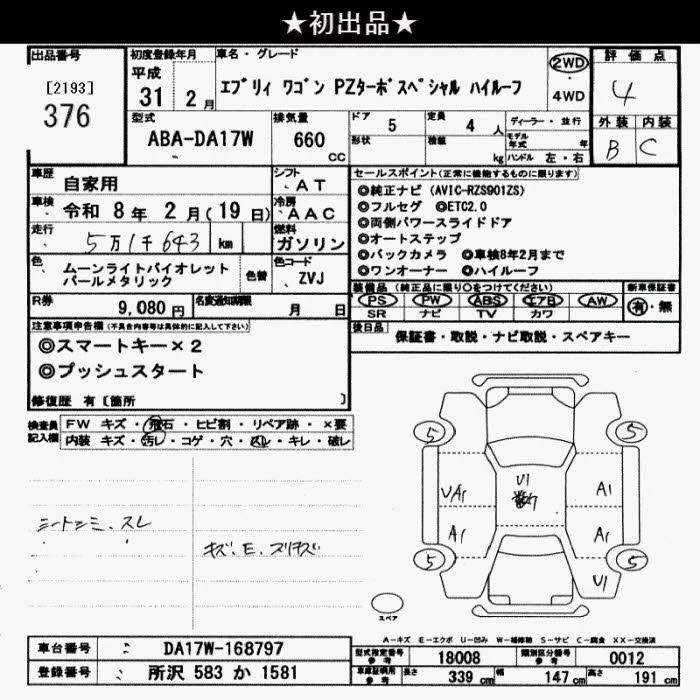 ★初出品★
出品番号
[2193]
376
初度登録年月
平成
31 2月
車名・グレード
エブリィ ワゴン PZターボスペシャル ハイルーフ
2WD
・
4WD
評価点
4
外装 内装
B C
型式
ABA-DA17W
排気量
660
CC
ドア 5
形状
定員 4 人
積載 kg
ディーラー・並行
モデル年式 年
ハンドル 左・右
車歴
自家用
シフト
AT
車検
令和 8年 2月(19日)
冷房
AAC
走行
5万1千643 km
燃料
ガソリン
色
ムーンライトバイオレット
パールメタリック
色替
色コード
ZVJ
R券
9,080円
名変通知期限
月 日
セールスポイント(正常に機能するものに限ります)
◎純正ナビ (AVIC-RZS901ZS)
◎フルセグ ◎ETC2.0
◎両側パワースライドドア
◎オートステップ
◎バックカメラ ◎車検8年2月まで
◎ワンオーナー ◎ハイルーフ
装備品 (純正品に限り○をつけてください)
新車保証書
PS PW ABS エアB AW
SR ナビ TV カワ
有・無
後日品
保証書・取説・ナビ取説・スペアキー
注意事項申告欄 (不具合内容等は具体的に記入して下さい)
◎スマートキー×2
◎プッシュスタート
修復歴 有〔箇所 〕
検査員
記入欄
FW キズ・飛石・ヒビ割・リペア跡・×要
内装 キズ・汚レ・コゲ・穴・スレ・キレ・破レ
シートシミ、スレ
キズ、E、スリキズ
5
5
U1
数ケ
UA1
A1
A1
A1
5
5
U1
スペア
A-キズ E-エクボ U-凹み W-補修跡 S-サビ C-腐食 XX-交換済
車台番号
DA17W-168797
登録番号
所沢 583 か 1581
型式指定番号
参考
18008
類別区分番号
参考
0012
車庫証明用
参考
長さ 339 cm
幅 147 cm
高さ 191 cm